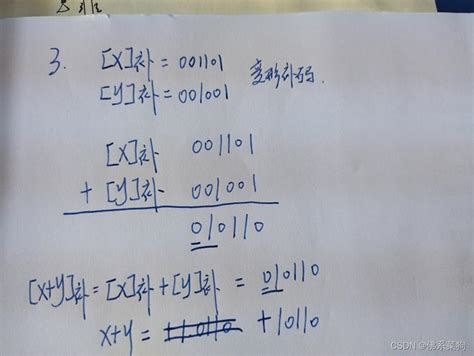 3. [X]补 = 001101
[Y]补 = 001001 变形补码.
[X]补 001101
+ [Y]补 001001
010110
[X+Y]补 = [X]补 + [Y]补 = 010110
X+Y = +10110
CSDN @佛系菜狗